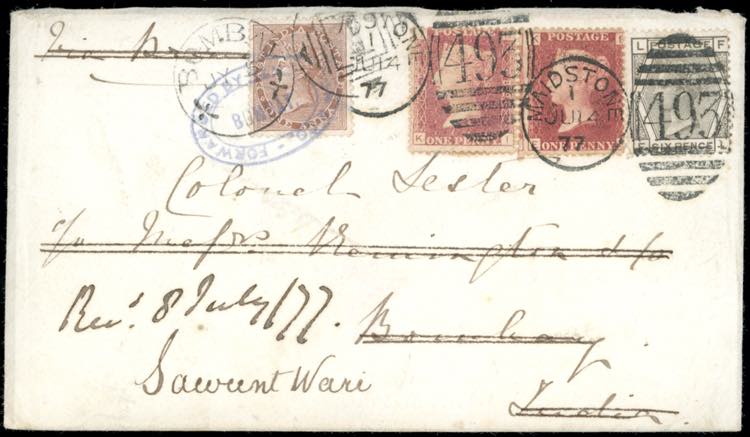 Via
BOMB
MAIDSTONE
1
JU 14
77
493
ONE PENNY
POSTAGE
ONE PENNY
MAIDSTONE
1
JU 14
77
L POSTAGE F
493
F SIX PENCE L
FORWARDED BY
Colonel Lester
c/o Messrs Remington & Co
Recd 8 July /77.
Bombay
Sawunt Wari
India